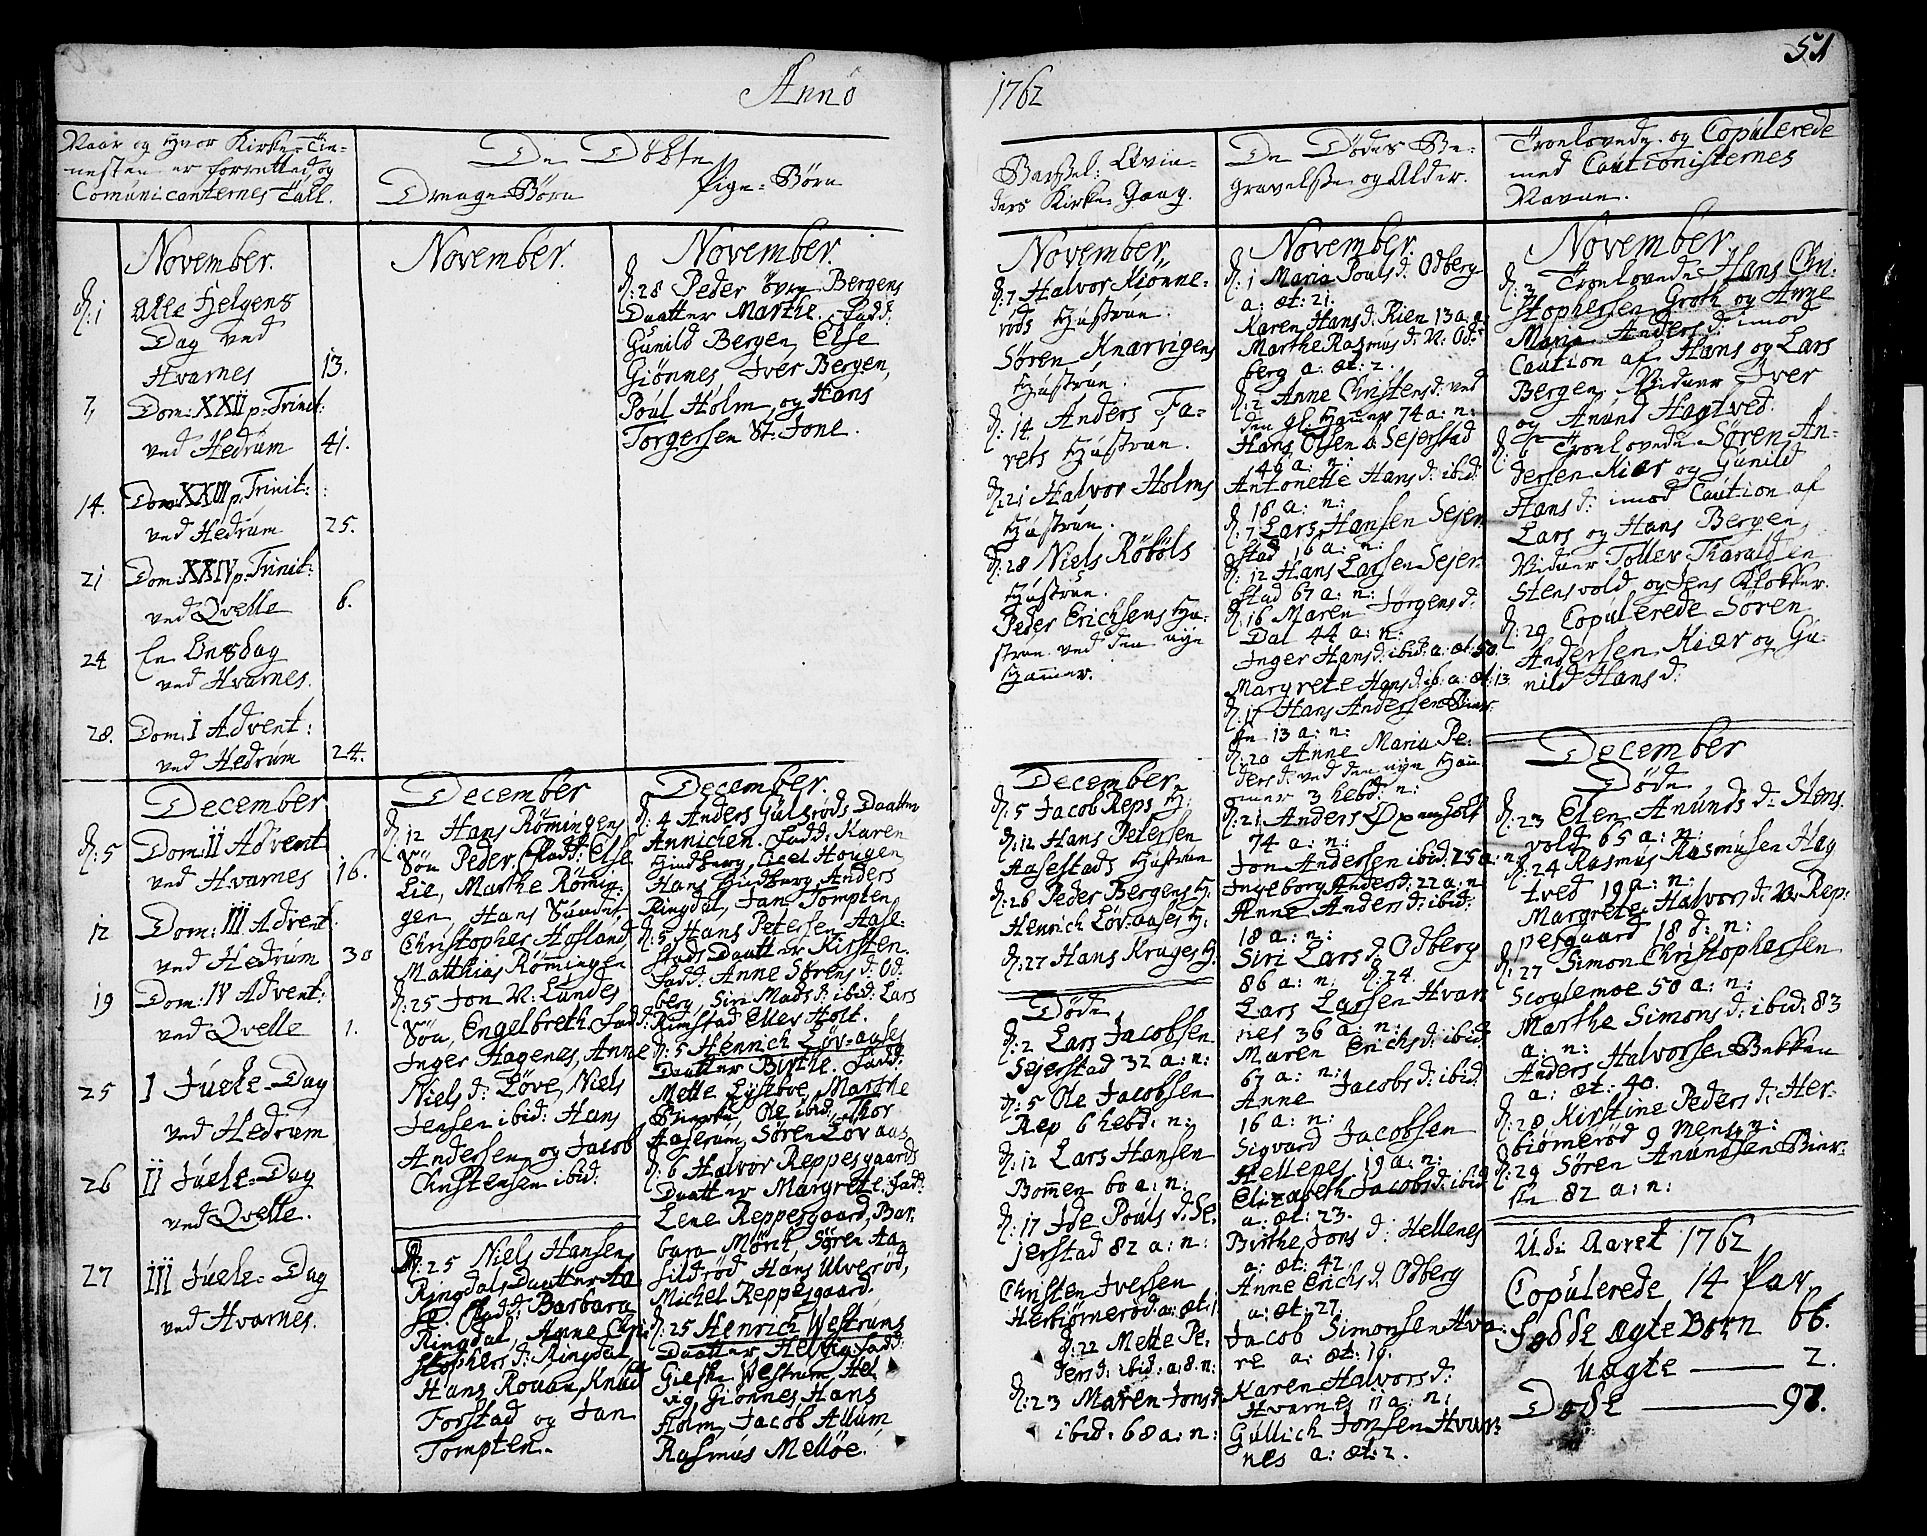 Anno
1762
51
Naar og Hvor Kirke-Tie-
nesten er forretted, og
Comunicanternes Tall.
De Døbte
Drenge-Børn
Pige-Børn
Barsel-Qvin-
ders Kirke Gang.
De Dødes Be-
gravelse og Alder.
Troelovede og Copulerede
med Cautionisternes
Navne.
November.
d: 1 Alle Helgens
Dag ved
Hvarnes 13.
7, Dom: XXII p. Trinit:
ved Hedrum 41.
14. Dom XXIII p. Trinit:
ved Hedrum 25.
21 Dom: XXIV p. Trinit:
ved Qvelle 6.
24 En Onsdag
ved Hvarnes.
28. Dom: I Advent:
ved Hedrum 24.
December
d: 5 Dom: II Advent
ved Hvarnes 16.
12 Dom: III Advent.
ved Hedrum 30
19 Dom: IV Advent:
ved Qvelle 1.
25 I Juele-Dag
ved Hedrum
26 II Juele-Dag
ved Qvelle.
27 III Juele-Dag
ved Hvarnes.
November.
December
d: 12 Hans Römingens
Søn Peder, Fadd: Else
Lie, Marthe Römin-
gen, Hans Sundet,
Christopher Hofland
Matthias Römingen
d: 25 Jon N: Lundes
Søn, Engelbreth Fadd:
Inger Hagenes, Anne
Niels d: Løve, Niels
Jensen ibid: Hans
Andersen og Jacob
Christensen ibid:
d: 25 Niels Hansens
Ringdals Daatter Aa
se. Fadd: Barbara
Ringdal, Anne Chri
stophers d: Ringdal
Hans Rouan, Knud
Forstad og Jan
Tompten.
November.
d: 28 Peder övre Bergens
Daatter Marthe. Fadd:
Gunild Bergen, Else
Giønnes, Iver Bergen,
Poul Holm, og Hans
Torgersen St: Jone.
December.
d: 4 Anders Gulsrods Daatter
Annichen. Fadd: Karen
Hindberg, Hougen,
Hans Hindberg, Anders
Ringdal, Jan Tompten
d: 5 Hans Petersen Aase-
stads Daatter Kirsten.
Fadd: Anne Sørens d: Od
berg, Siri Mads d: ibid: Lars
Rimstad Eller Holt.
d: 5 Henrich Løv-aases
Daatter Birthe. Fadd:
Mette Lyseboe, Marthe
Ole ibid:
Aaserum, Søren Løv aas
d: 6 Halvor Reppesgaards
Daatter Margrete. Fadd:
Lene Reppesgaard, Bar-
bara Mörit, Søren Aa
sildrød, Hans Ulverød,
Michel Reppesgaard.
d: 25 Henrich Westrums
Daatter Helvig. Fadd:
Giesk Westrum, Hel
vig, Giønnes, Hans
Holm, Jacob Allum
Rasmus Melløe.
November,
d: 7 Halvor Kiønne-
rods Hustrue.
Søren Knarvigens
Hustrue.
d: 14 Anders Fa-
rets Hustrue.
d: 21 Halvor Holms
Hustrue.
d: 28 Niels Röböls
Hustrue.
Peder Erichsens Hu-
strue ved den nye
Hamer.
December.
d: 5 Jacob Reps H:
d: 12 Hans Petersen
Aasestads Hustrue
d: 26 Peder Bergens H:
Henrich Löv-aases H:
d: 27 Hans Krages H:
Døde
d: 2 Lars Jacobsen
Sejerstad 32 a: n:
d: 5 Ole Jacobsen
Rep 6 hebd: n:
d: 12 Lars Hansen
Bommen 60 a: n:
d: 17 Ide Pouls d: Se-
jerstad 82 a: n:
Christen Ivessen
Herbiømerød: a: æt: 1
d: 22 Mette Pe-
ders d: ibid: a: 8: n:
d: 23 Maren Jons d:
ibid: 68 a: n:
November.
d: 1 Maria Pouls d: Odberg
a: æt: 21.
Karen Hans d: Rien 13 a: n:
Marthe Rasmus d: N: Od-
berg a: æt: 2.
d: 2 Anne Christens d: ved
den gl: Hamer 74 a: n:
Hans Olsen Sejerstad
49 a: n:
Antonette Hans d: ibid:
18 a: n:
d: 7 Lars Hansen Sejer
stad 16 a: n:
d: 12 Hans Larsen Sejer-
stad 67 a: n:
d: 16 Maren Jörgens d:
Dal 44 a: n:
Inger Hans d: ibid: a: æt: 50
Margrete Hans d: ib: a: æt: 13
d: 17 Hans Andersen Bier-
ke 13 a: n:
d: 20 Anne Maria Pe-
ders d: ved den nye Ham
mer 3 hebd: n:
d: 21 Anders Øxenholt
74 a: n:
Jon Andersen ibid: 25 a: n:
Ingeborg Anders d: 22 a: n:
Anne Anders d: ibid:
18 a: n:
Siri Lars d: Odberg
86 a: n. d: 24.
Lars Larsen Hvar
nes 36 a: n:
Maren Erichs d: ibid:
67 a: n:
Anne Jacobs d: ibid:
16 a: n:
Sigvard Jacobsen
Hellenes 19 a: n:
Elizabeth Jacobs d: ibid:
a: æt: 23.
Birthe Jons d: Hellenes
a: æt: 42.
Anne Erichs d: Odberg
a: æt: 27.
Jacob Simonsen Hva
re a: æt: 16.
Karen Halvors d:
Hvarnes 11 a: n:
Gullich Jonsen Hvar
nes a: æt: 2.
November.
d: 3 Troelovede Hans Chri-
stophersen Groth og Anne
Maria Anders d: imod
Caution af Hans og Lars
Bergen. Vidner Iver
og Anund Hagtved.
d: 6 Troelovede Søren An-
dersen Kiær og Gunild
Hans d: imod Caution af
Lars og Hans Bergen,
Vidner Tollev Tharaldsen
Stensvold og Jens Klokker.
d: 29 Copulerede Søren
Andersen Kiær og Gu-
nild Hans d:
December
Døde
d: 23 Elen Anunds d: Stens
vold 65 a: n:
d: 24 Rasmus Rasmusen Hag
tved 19 a: n:
Margrete Halvors d: N: Rep-
pesgaard 18 d: n:
d: 27 Simon Christophersen
Scoglemoe 50 a: n:
Marthe Simons d: ibid: 83
a: n:
Anders Halvorsen Bekken
a: æt: 40.
d: 28 Kirstine Peders d: Her-
biømerød 9 Mens: n:
d: 29 Søren Anundsen Bier-
ke 82 a: n:
Udi Aaret 1762
Copulerede 14 Par
Fødde ægte Børn 66.
Uægte 2.
Døde 97.